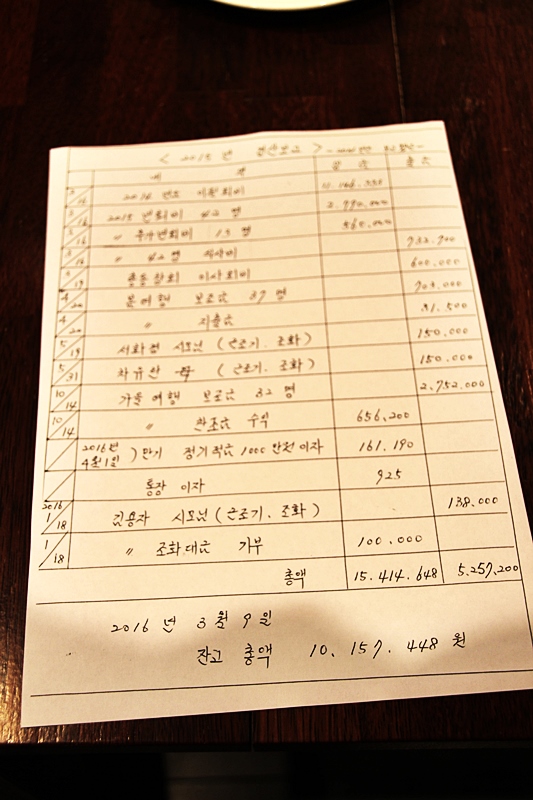 < 2015년 결산보고 >
내 역
2015 년회비 42 명 2,990,000
3/16 " 추가년회비 13 명 560,000
" 42 명 식사비 932,900
총동창회 이사회비 600,000
4/20 봄여행 보조금 37 명 903,000
4/20 " 지출금 31,500
5/19 시모님 (근조기. 조화) 150,000
5/31 (근조기. 조화) 150,000
10/14 가을여행 보조금 32 명 2,752,000
10/14 " 찬조금 수익 656,200
2016년 4월1일 ) 만기 정기적금 1000만원 이자 161,190
통장 이자 925
2016 1/18 김용자 시모님 (근조기. 조화) 138,000
1/18 " 조화대금 기부 100,000
총액 15,414,648 5,257,200
2016 년 3 월 9 일
잔고 총액 10,157,448 원